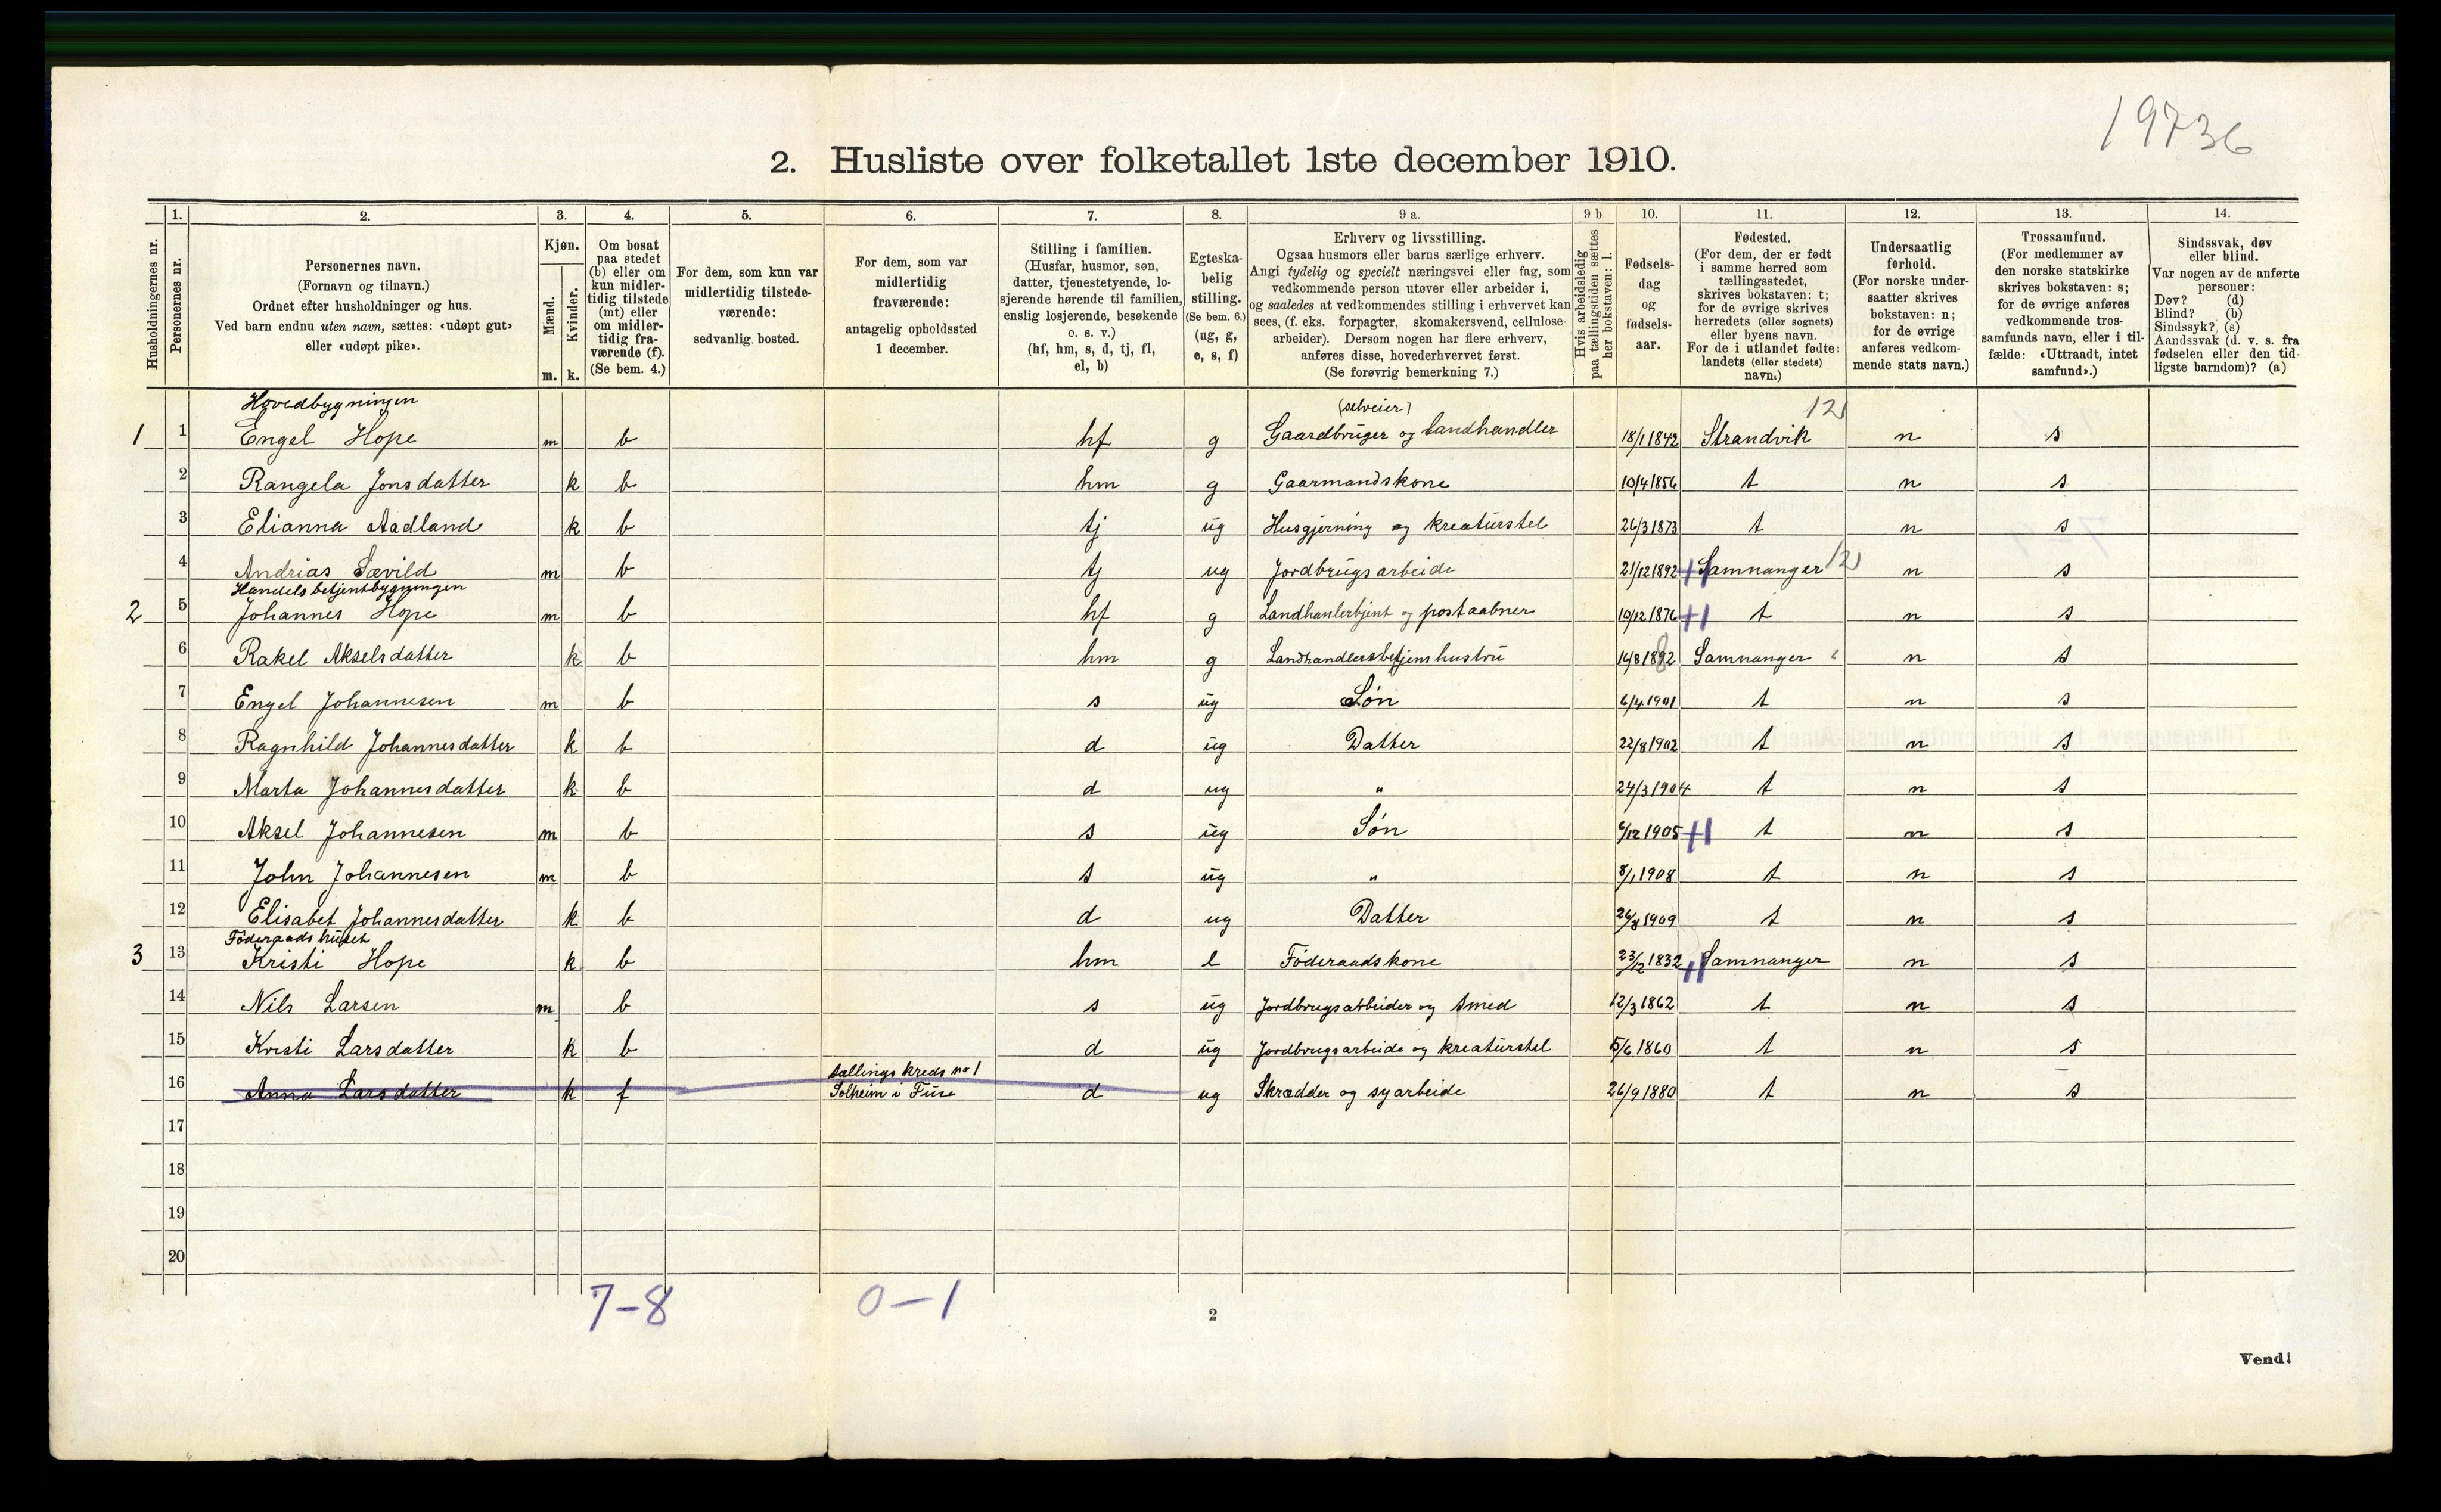 19736
2. Husliste over folketallet 1ste december 1910.
1. 2. 3. 4. 5. 6. 7. 8. 9 a. 9 b 10. 11. 12. 13. 14.
Husholdningernes nr.
Personernes nr.
Personernes navn.
(Fornavn og tilnavn.)
Ordnet efter husholdninger og hus.
Ved barn endnu uten navn, sættes: «udøpt gut»
eller «udøpt pike».
Kjøn.
Mænd.
Kvinder.
m. k.
Om bosat
paa stedet
(b) eller om
kun midler-
tidig tilstede
(mt) eller
om midler-
tidig fra-
værende (f).
(Se bem. 4.)
For dem, som kun var
midlertidig tilstede-
værende:
sedvanlig bosted.
For dem, som var
midlertidig
fraværende:
antagelig opholdssted
1 december.
Stilling i familien.
(Husfar, husmor, søn,
datter, tjenestetyende, lo-
sjerende hørende til familien,
enslig losjerende, besøkende
o. s. v.)
(hf, hm, s, d, tj, fl,
el, b)
Egteska-
belig
stilling.
(Se bem. 6.)
(ug, g,
e, s, f)
Erhverv og livsstilling.
Ogsaa husmors eller barns særlige erhverv.
Angi tydelig og specielt næringsvei eller fag, som
vedkommende person utøver eller arbeider i,
og saaledes at vedkommendes stilling i erhvervet kan
sees, (f. eks. forpagter, skomakersvend, cellulose-
arbeider). Dersom nogen har flere erhverv,
anføres disse, hovederhvervet først.
(Se forøvrig bemerkning 7.)
Hvis arbeidsledig
paa tællingstiden sættes
her bokstaven: l.
Fødsels-
dag
og
fødsels-
aar.
Fødested.
(For dem, der er født
i samme herred som
tællingsstedet,
skrives bokstaven: t;
for de øvrige skrives
herredets (eller sognets)
eller byens navn.
For de i utlandet fødte:
landets (eller stedets)
navn.)
Undersaatlig
forhold.
(For norske under-
saatter skrives
bokstaven: n;
for de øvrige
anføres vedkom-
mende stats navn.)
Trossamfund.
(For medlemmer av
den norske statskirke
skrives bokstaven: s;
for de øvrige anføres
vedkommende tros-
samfunds navn, eller i til-
fælde: «Uttraadt, intet
samfund».)
Sindssvak, døv
eller blind.
Var nogen av de anførte
personer:
Døv? (d)
Blind? (b)
Sindssyk? (s)
Aandssvak (d. v. s. fra
fødselen eller den tid-
ligste barndom)? (a)
Hovedbygningen (selveier) 12
1 1 Engel Hope m b hf g Gaardbruger og landhandler 18/1 1842 Strandvik n s
2 Rangela Jonsdatter k b hm g Gaarmandskone 10/4 1856 t n s
3 Elianna Aadland k b tj ug Husgjerning og kreaturstel 26/3 1873 t n s
4 Andrias Sævild m b tj ug Jordbrugsarbeide 21/12 1892 Samnanger 12 n s
Handelsbetjentbygningen
2 5 Johannes Hope m b hf g Landhanlerbjent og postaabner 10/12 1876 t n s
6 Rakel Akselsdatter k b hm g Landhandlersbetjens hustru Samnanger n s
7 Engel Johannesen m b s ug Søn 6/4 1901 t n s
8 Ragnhild Johannesdatter k b d ug Datter 22/8 1902 t n s
9 Marta Johannesdatter k b d ug " 24/3 1904 t n s
10 Aksel Johannesen m b s ug Søn 6/12 1905 t n s
11 John Johannesen m b s ug " 8/1 1908 t n s
12 Elisabet Johannesdatter k b d ug Datter 1909 t n s
Föderaadshuset
3 13 Kristi Hope k b hm Föderaadskone 23/12 1832 Samnanger n s
14 Nils Larsen m b s ug Jordbrugsarbeider og smed 12/3 1862 t n s
15 Kristi Larsdatter k b d ug Jordbrugsarbeide og kreaturstel 5/6 1860 t n s
tællingskreds no 1
16 Anna Larsdatter k f Solheim i Fuse d ug Skrædder og syarbeide 26/9 1880 t n s
17
18
19
20
7-8 0-1
2
Vend!